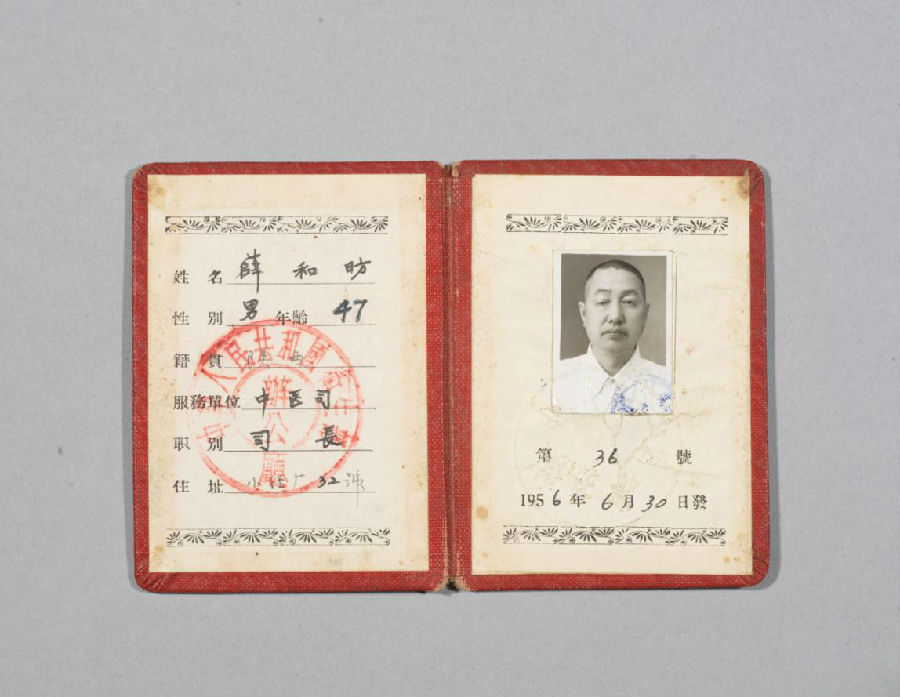 姓 名 薛 和 昉
性 别 男 年齡 47
籍 貫
服務單位 中医司
职 别 司 長
住 址 32 號
人民共和國
辦公廳
第 36 號
1956年 6月30日發